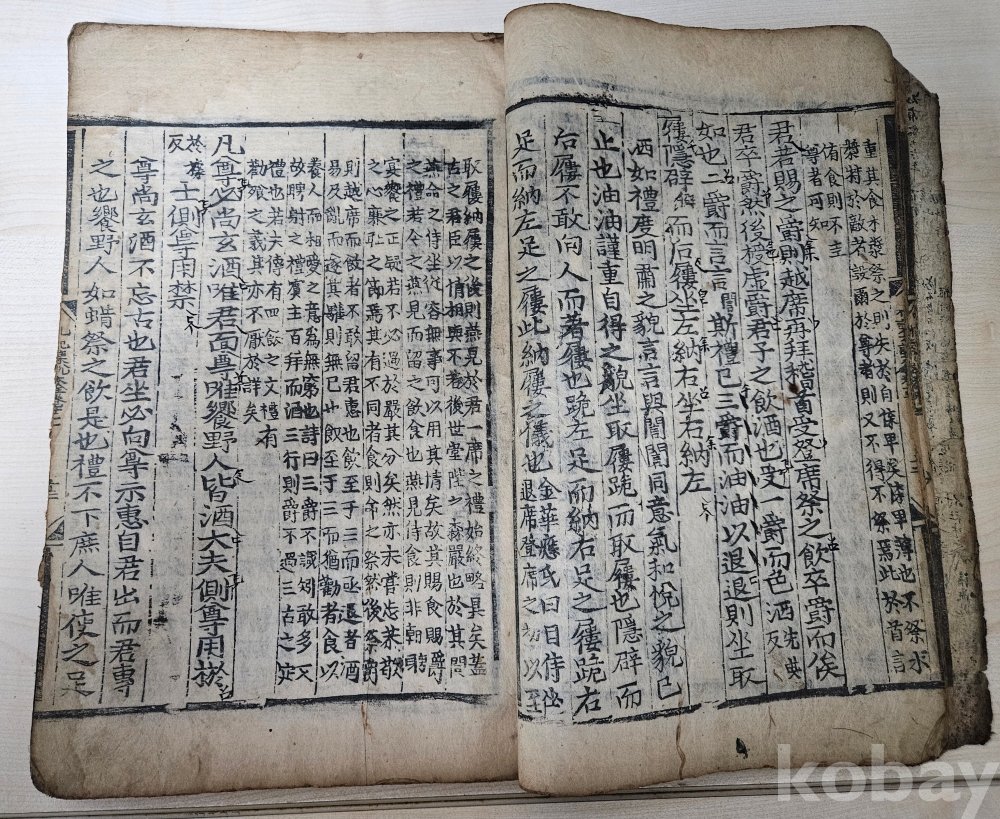 漿特於敵者設爾於尊者則又不得不祭焉此於首言
侑食則不主
尊者可知
君若賜之爵則越席再拜稽首受登席祭之飮卒爵而俟
君卒爵然後授虛爵君子之飮酒也受一爵而色洒先典反
如也二爵而言言誾斯禮已三爵而油油以退退則坐取
屨隱辟而后屨坐左納右坐右納左
洒如禮度明肅之貌言言與誾誾同意氣和悅之貌已
止也油油謹重自得之貌坐取屨跪而取屨也隱辟而
后屨不敢向人而著屨也跪左足而納右足之屨跪右
足而納左足之屨此納屨之儀也金華應氏曰自侍坐退席聲席之初以至
取屨納屨之後則燕見於君一席之禮始終略具矣蓋
古之君臣以情相與不若後世堂陛之森嚴也於其閒
燕命之侍坐從容無事可以用其情矣故其賜食賜爵
之禮若今之燕見而留之飮食也燕見侍食則非朝聘
宴饗之正疑若不必過於嚴其分矣然亦未嘗忘恭敬
之心廉耻之節焉其有不同者食則命之祭然後祭爵
則越席而飮者不敢留君惠也飮至于三而亟退者酒
易及亂而進其難則無已也飮至于三而猶勸者食以
養人而相愛之意爲無窮也詩曰三爵不識矧敢多又
故聘射之禮賓主百拜而酒三行則爵不過三古之定
禮也若夫傳有四飮之文禮有
勸飱之義其亦不厭於詳矣
凡尊必尙玄酒唯君面尊唯饗野人皆酒大夫側尊用棜
於據反士側尊用禁
尊尙玄酒不忘古也君坐必向尊示惠自君出而君專
之也饗野人如蜡祭之飮是也禮不下庶人唯使之足
kobay